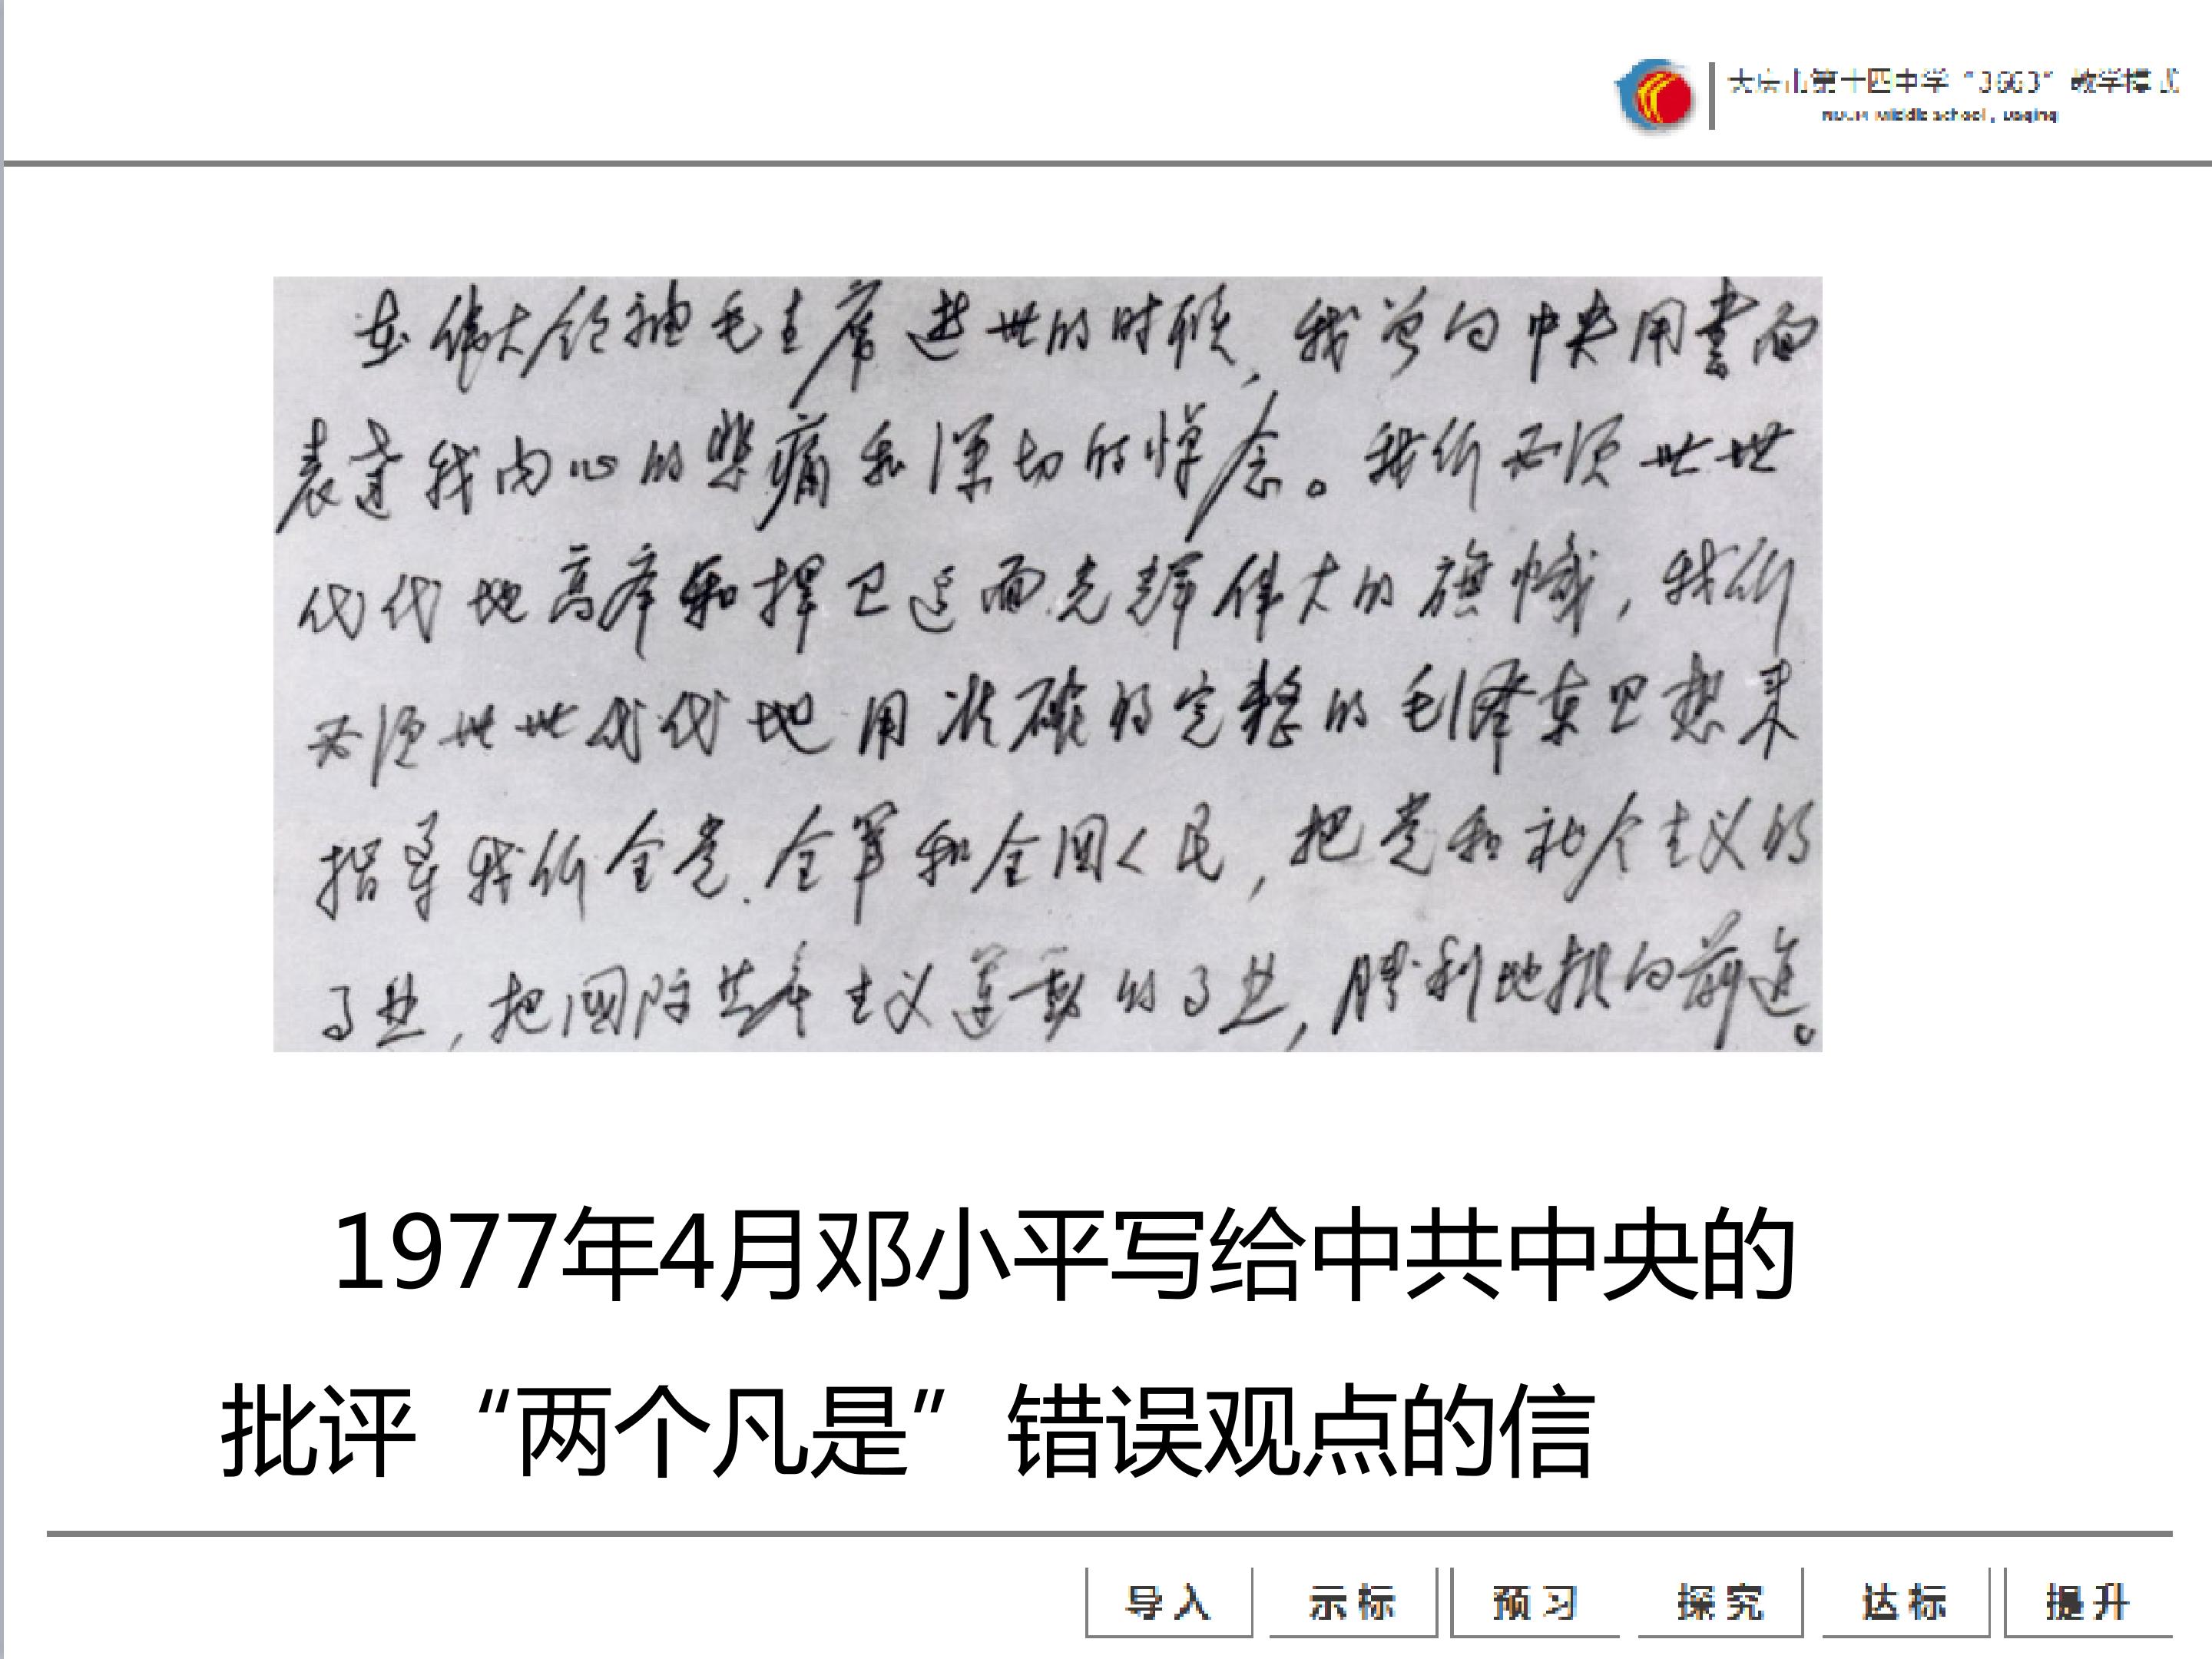 大庆市第十四中学“3663”教学模式
NO.14 Middle school, Daqing
在伟大领袖毛主席逝世的时候，我曾向中央用書面
表达我内心的悲痛和深切的悼念。我们必须世世
代代地高举和捍卫这面光辉伟大的旗帜，我们
必须世世代代地用准确的完整的毛泽东思想来
指导我们全党、全军和全国人民，把党和社会主义的
事业，把国际共产主义運動的事业，勝利地推向前进。
1977年4月邓小平写给中共中央的
批评“两个凡是”错误观点的信
导入 示标 预习 探究 达标 提升